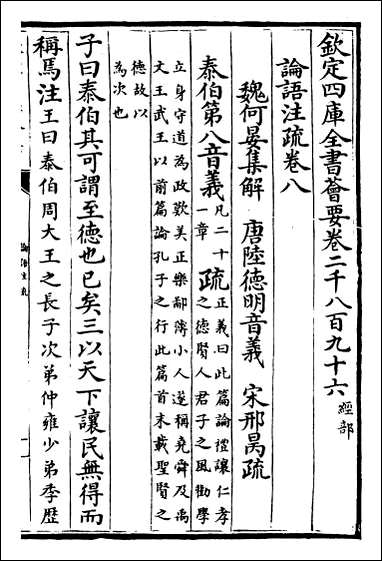 欽定四庫全書薈要卷二千八百九十六 經部
論語注疏卷八
魏何晏集解 唐陸德明音義 宋邢昺疏
泰伯第八音義 凡二十一章 疏 正義曰此篇論禮讓仁孝之德賢人君子之風勸學
立身守道為政歎美正樂鄙薄小人遂稱堯舜及禹
文王武王以前篇論孔子之行此篇首末載聖賢之
德故以
為次也
子曰泰伯其可謂至德也已矣三以天下讓民無得而
稱焉注王曰泰伯周大王之長子次弟仲雍少弟季歷